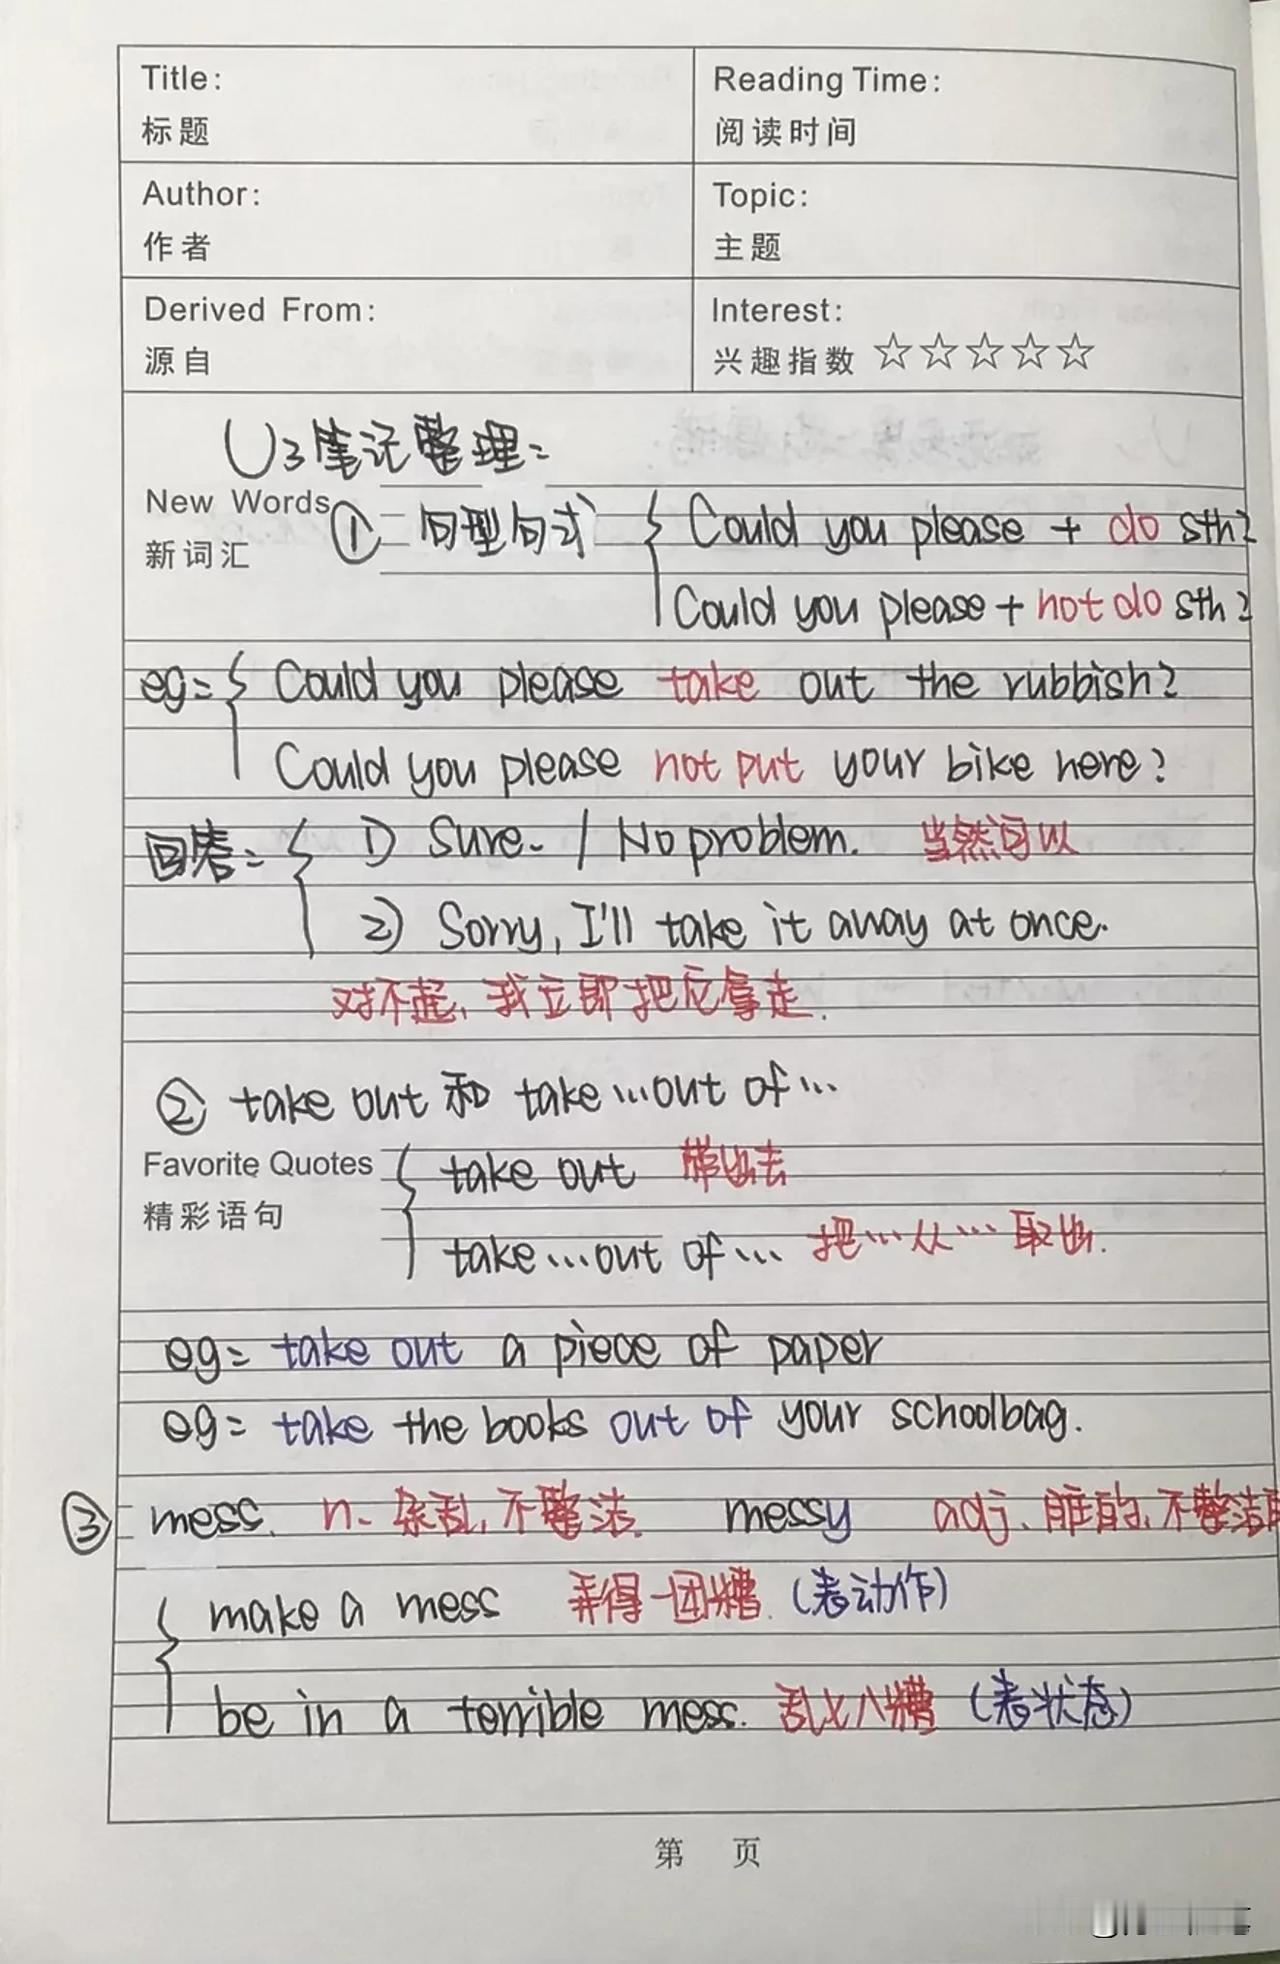 Title:
标题
Reading Time:
阅读时间
Author:
作者
Topic:
主题
Derived From:
源自
Interest:
兴趣指数 ☆☆☆☆☆
U3笔记整理:
New Words
新词汇
① 句型句式 { Could you please + do sth?
Could you please + not do sth?
eg: { Could you please take out the rubbish?
Could you please not put your bike here?
回答: { 1) Sure. / No problem. 当然可以
2) Sorry, I'll take it away at once.
对不起, 我立即把它拿走.
② take out 和 take...out of...
Favorite Quotes
精彩语句
{ take out 带出去
take...out of... 把...从...取出.
eg: take out a piece of paper
eg: take the books out of your schoolbag.
③ mess. n. 杂乱, 不整洁. messy adj. 脏的, 不整洁的
{ make a mess 弄得一团糟. (表动作)
be in a terrible mess. 乱七八糟 (表状态)
第 页